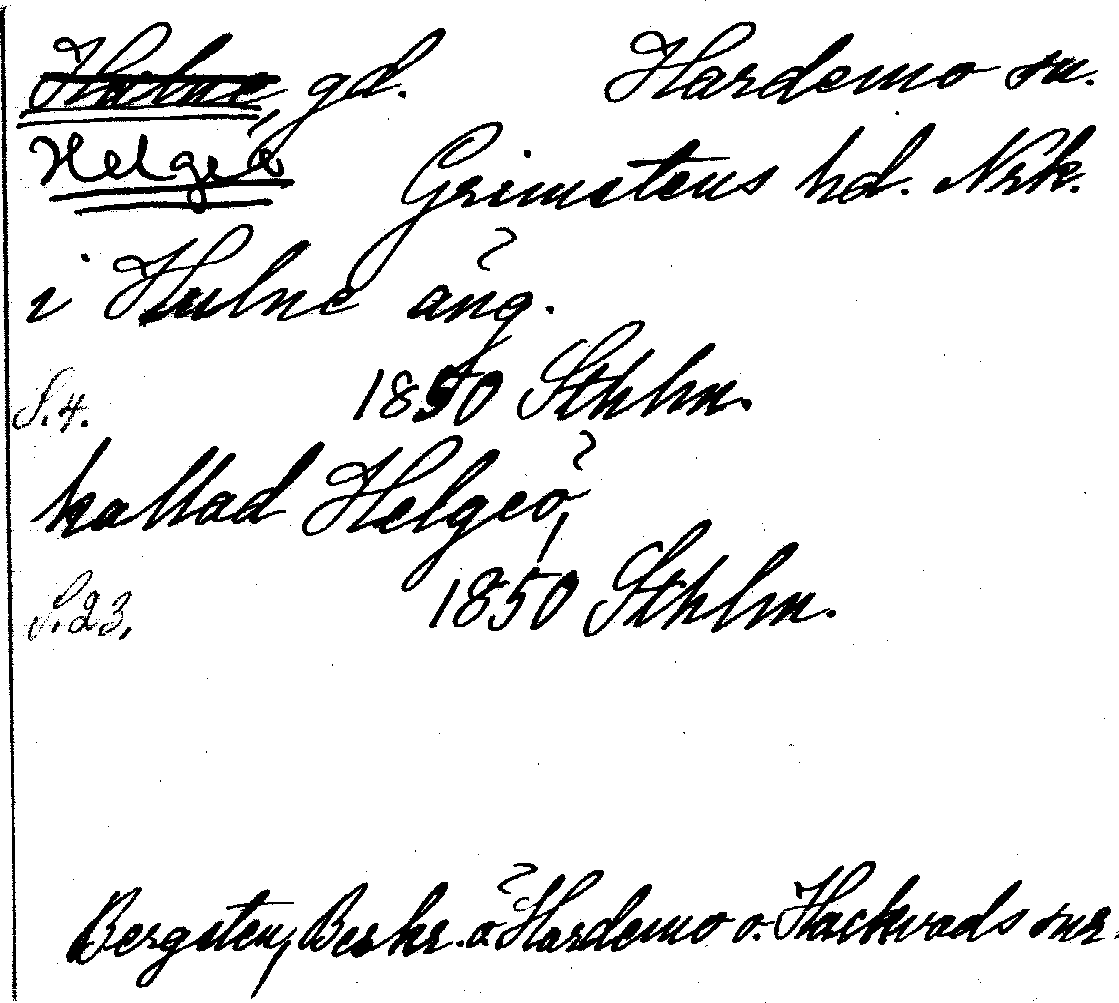 Hulne, gd. Hardemo sn.
Helgeö
Grimstens hd. Nrk.
i Hulne äng.
S.4. 1850 Sthlm.
kallad Helgeö,
S.23, 1850 Sthlm.
Bergsten, Beskr. ö. Hardemo o. Hackvads snr.